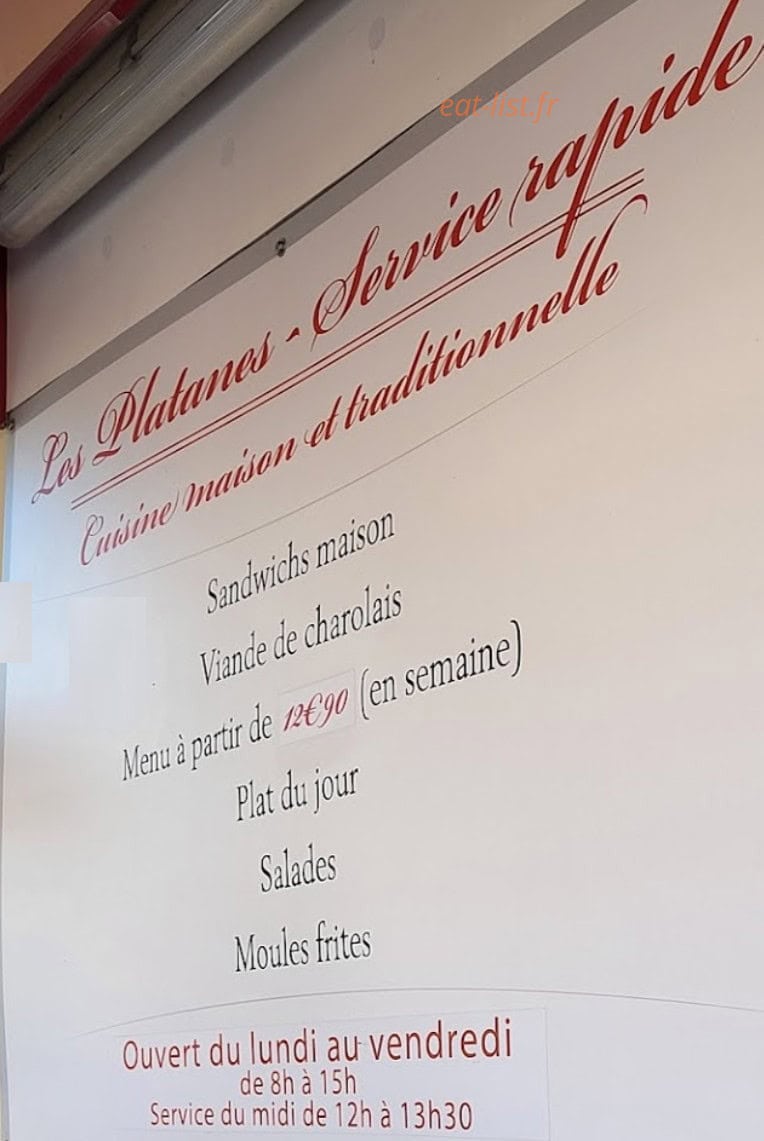 eat-list.fr
Les Platanes - Service rapide
Cuisine maison et traditionnelle
Sandwichs maison
Viande de charolais
Menu à partir de 12€90 (en semaine)
Plat du jour
Salades
Moules frites
Ouvert du lundi au vendredi
de 8h à 15h
Service du midi de 12h à 13h30